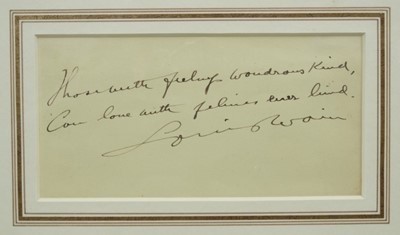 Those with feelings wondrous kind,
Can love with felines ever bind.
Louis Wain